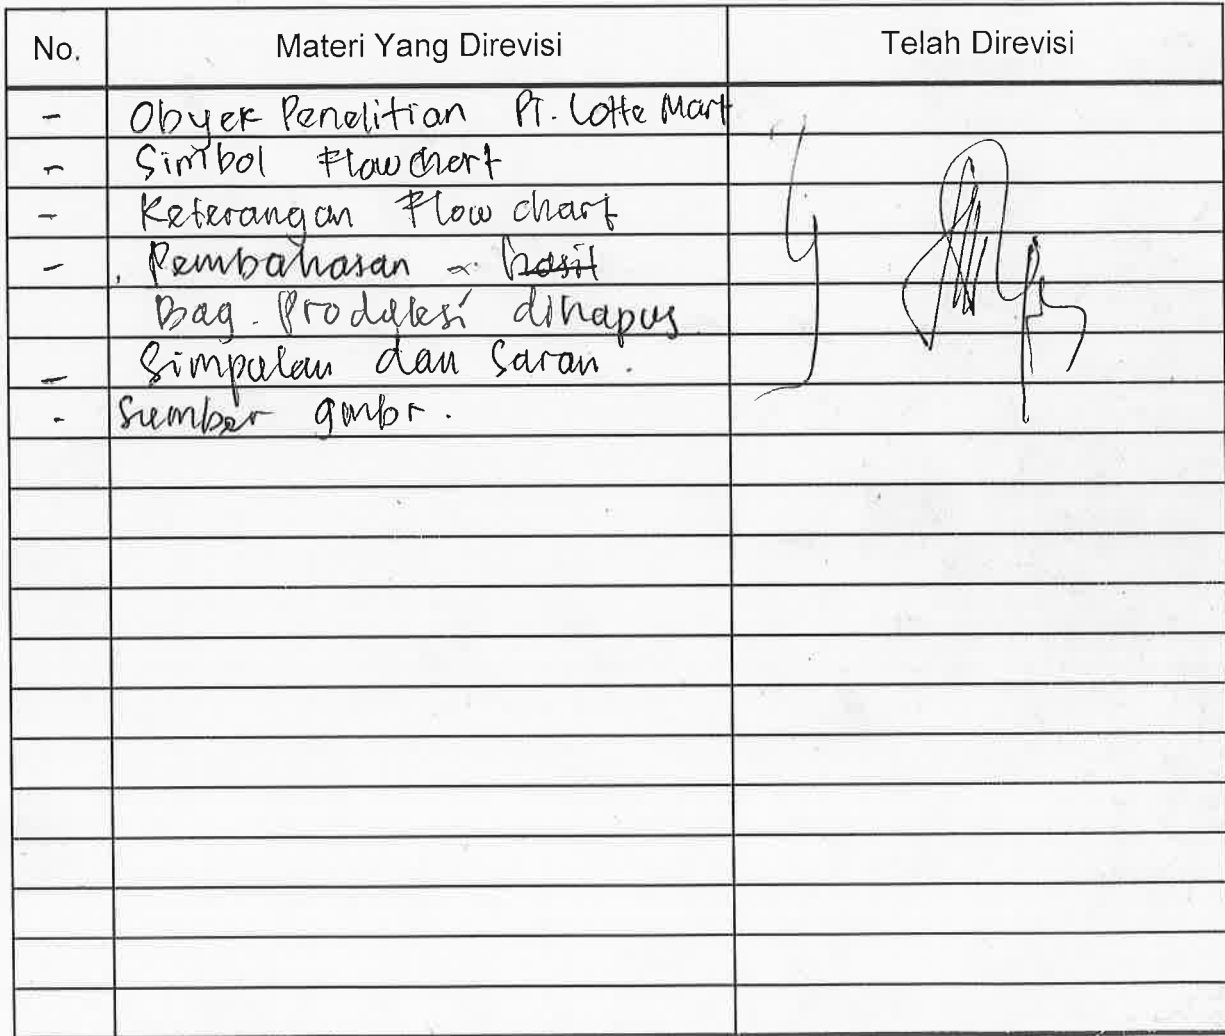 No. Materi Yang Direvisi Telah Direvisi
- Obyek Penelitian PT. Lotte Mart
- Simbol Flowchart
- Keterangan Flow chart
- Pembahasan hasil
Bag. Produksi dihapus
- Simpulan dan Saran.
- Sumber gmbr.